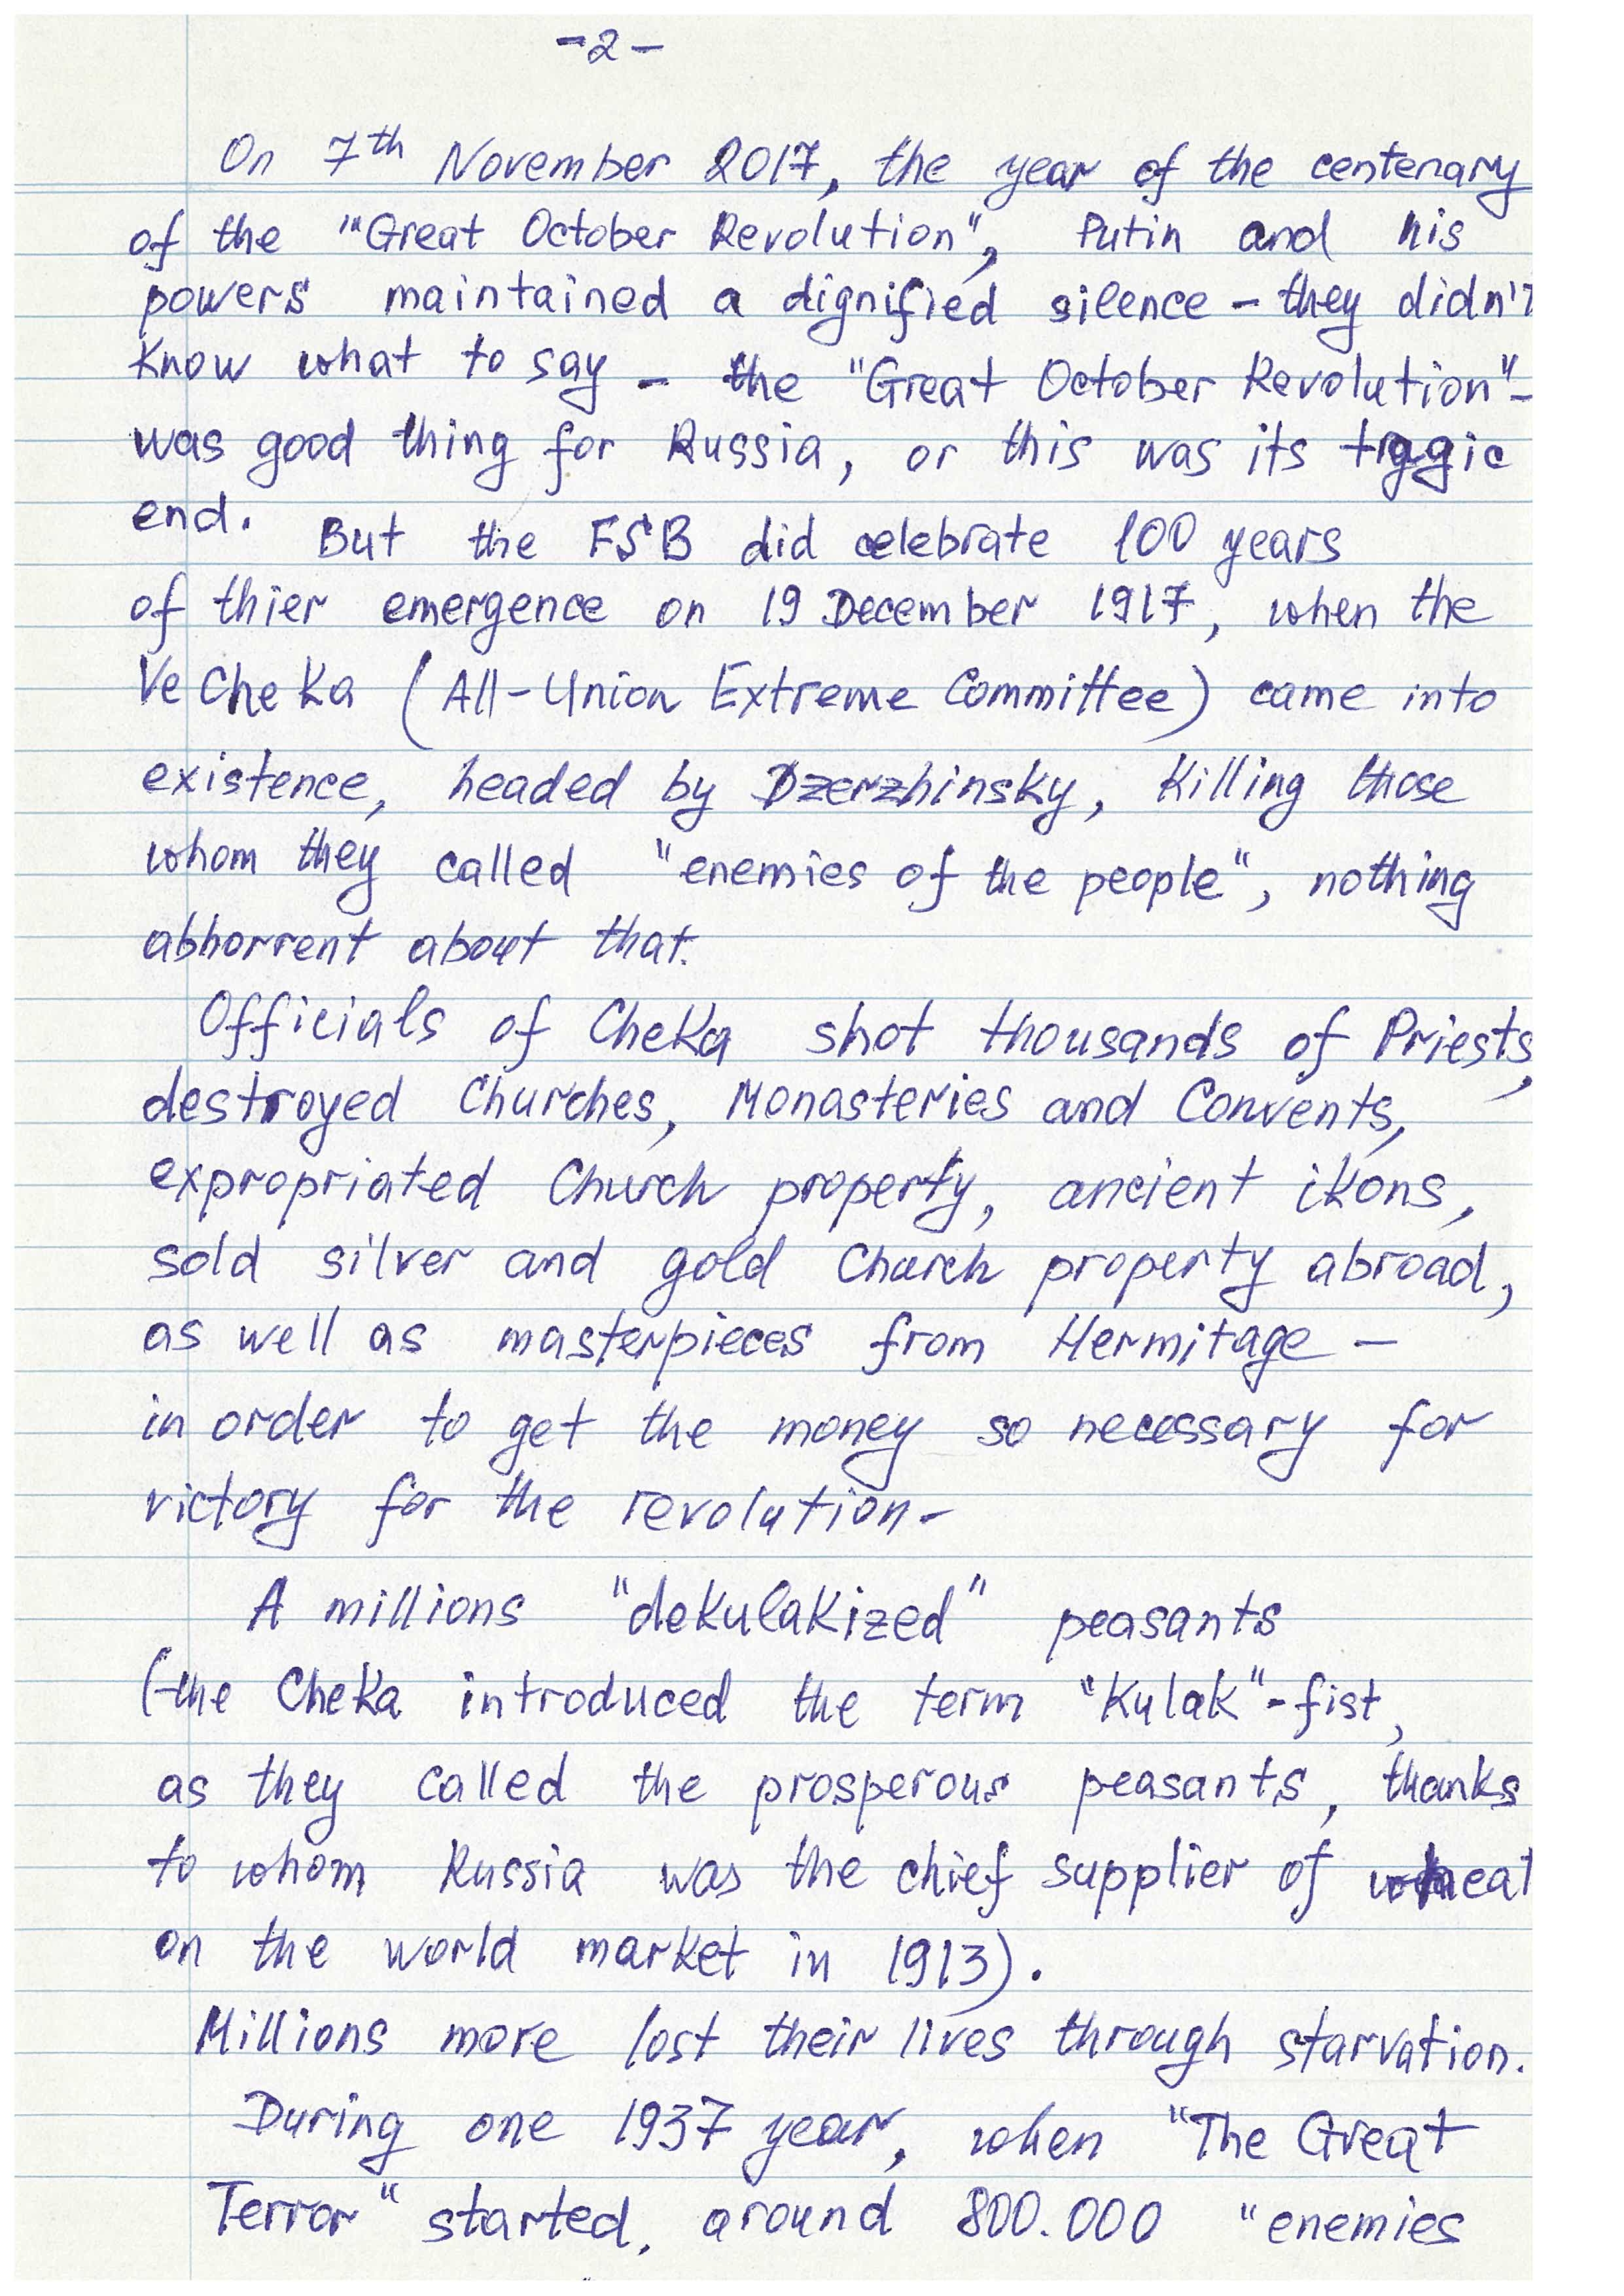 -2-
On 7th November 2017, the year of the centenary
of the "Great October Revolution", Putin and his
powers maintained a dignified silence - they didn't
know what to say - the "Great October Revolution" -
was good thing for Russia, or this was its tragic
end. But the FSB did celebrate 100 years
of thier emergence on 19 December 1917, when the
VeCheKa (All-Union Extreme Committee) came into
existence, headed by Dzerzhinsky, killing those
whom they called "enemies of the people", nothing
abhorrent about that.
Officials of Cheka shot thousands of Priests,
destroyed Churches, Monasteries and Convents,
expropriated Church property, ancient ikons,
sold silver and gold Church property abroad,
as well as masterpieces from Hermitage -
in order to get the money so necessary for
victory for the revolution-
A millions "dekulakized" peasants
(the Cheka introduced the term "Kulak"-fist,
as they called the prosperous peasants, thanks
to whom Russia was the chief supplier of wheat
on the world market in 1913).
Millions more lost their lives through starvation.
During one 1937 year, when "The Great
Terror" started, around 800.000 "enemies